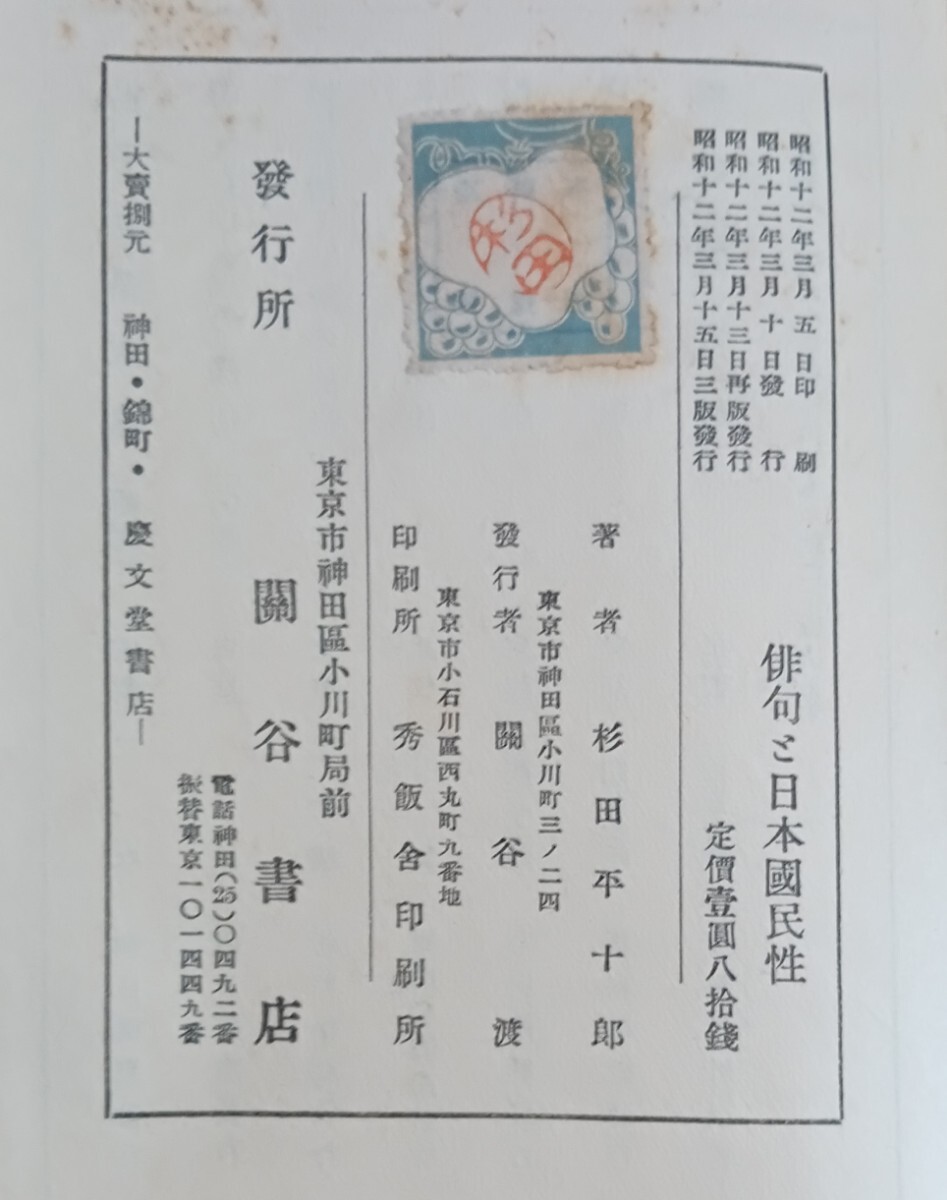 昭和十二年三月五日印刷
昭和十二年三月十日發行
昭和十二年三月十三日再版發行
昭和十二年三月十五日三版發行
俳句と日本國民性
定價壹圓八拾錢
杉田
著者 杉田平十郎
東京市神田區小川町三ノ二四
發行者 關谷渡
東京市小石川區西丸町九番地
印刷所 秀飯舍印刷所
東京市神田區小川町局前
發行所 關谷書店
電話神田(25)〇四九二番
振替東京一〇一四四九番
―大賣捌元 神田・錦町・慶文堂書店―